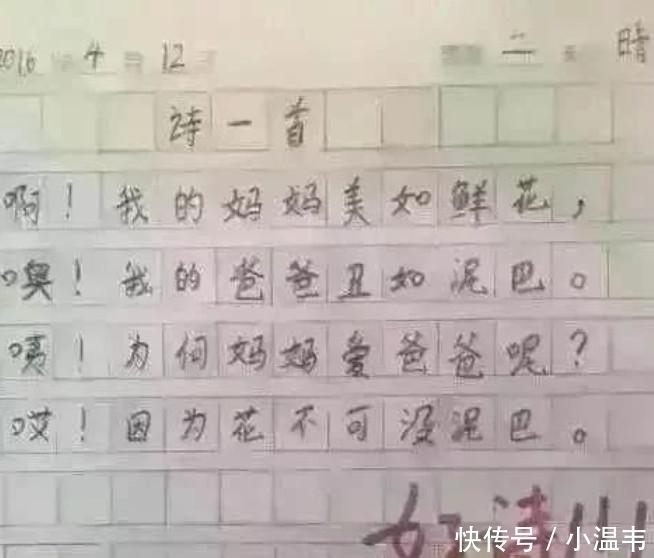 2016 4 12 二 晴
诗一首
啊!我的妈妈美如鲜花,
噢!我的爸爸丑如泥巴。
咦!为何妈妈爱爸爸呢?
哎!因为花不可没泥巴。
快传号/小温韦